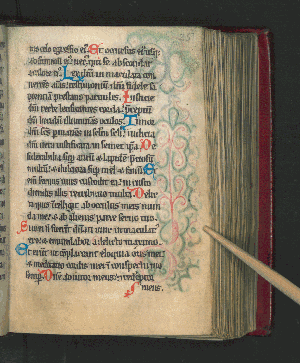 mo celo egressio eiꝰ Et occursus eiꝰ usq;
ad summū eiꝰ nec ē qui se abscondat
a calore eiꝰ Lex dñi inmaculata con
uertens aīas testimoniū dñi fidele sa
pientiā prestans paruulis. Iusticie
dñi recte letificantes corda preceptū
dñi lucidū illuminans oculos. Timor
dñi scs pmanens in sclm scli iudicia
dñi uera iustificata in semet ipsa De
siderabilia sup aurū et lapidē preciosū
multū et dulciora sup mel et fauū Et
enī seruus tuus custodit ea in custo
diendis illis retributio multa Delic
ta quis intelligit ab occultis meis mun
da me et ab alienis parce seruo tuo
Si mei n̄ fuerint dn̄ati tunc inmaculatꝰ
ero et emundabor a delicto maximo
Et erunt ut cōplaceant eloquia oris mei
et meditatio cordis mei in conspectu tuo
semp Dn̄e adiutor meus et redemptor
meus.